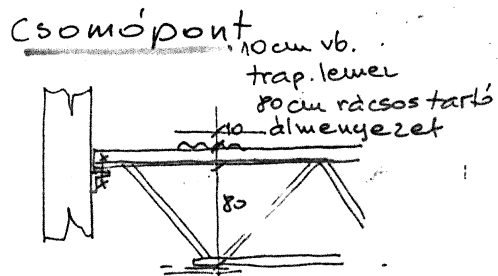 Csomópont
10 cm vb.
trap. lemez
80 cm rácsos tartó
álmenyezet
10
80